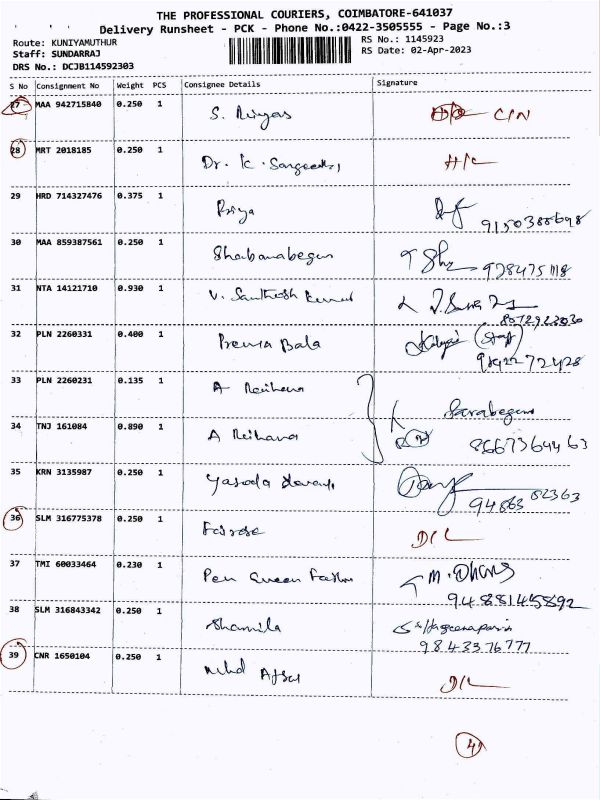 THE PROFESSIONAL COURIERS, COIMBATORE-641037
Delivery Runsheet - PCK - Phone No.:0422-3505555 - Page No.:3
Route: KUNIYAMUTHUR RS No.: 1145923
Staff: SUNDARRAJ RS Date: 02-Apr-2023
DRS No.: DCJB114592303
S No Consignment No Weight PCS Consignee Details Signature
27 MAA 942715840 0.250 1 S. Riyas C/N
28 MRT 2018185 0.250 1 Dr. K. Sangeetha H/C
29 HRD 714327476 0.375 1 Priya
9150388698
30 MAA 859387561 0.250 1 Shabanabegum
31 NTA 14121710 0.930 1 V. Santhosh Kumar
8072923030
32 PLN 2260331 0.400 1 Prema Bala (Staff)
9842272428
33 PLN 2260231 0.135 1 A Reihana Sarabegum
34 TNJ 161084 0.890 1 A Reihana 8667364463
35 KRN 3135987 0.250 1 Yasoda
94863 82363
36 SLM 316775378 0.250 1 Fairose D/L
37 TMI 60033464 0.230 1 Pen Queen M. Dhans
9488145892
38 SLM 316843342 0.250 1 Shamila
9843376777
39 CNR 1650104 0.250 1 Mhd Afsal D/L